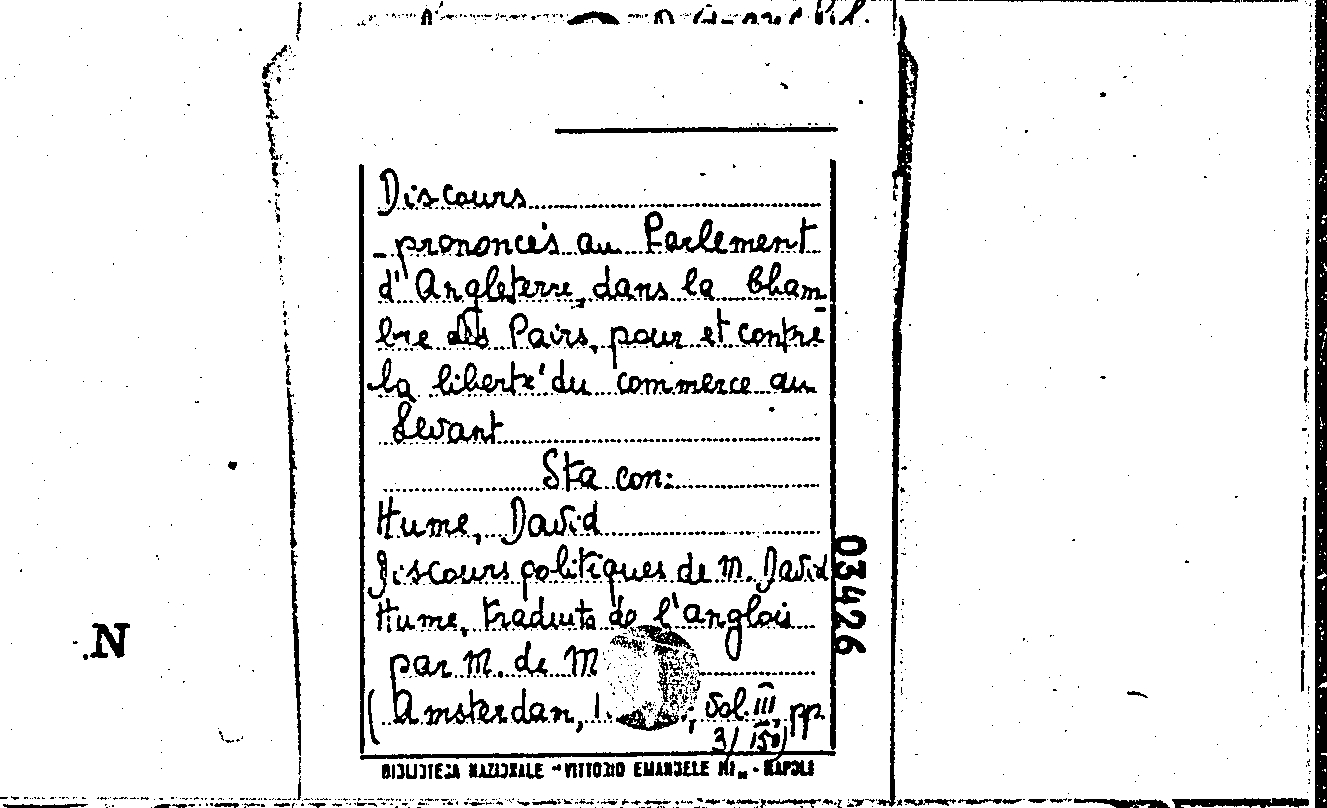 Discours
- prononcés au Parlement
d'Angleterre, dans la Cham-
bre des Pairs, pour et contre
la liberté du commerce au
Levant
Sta con:
Hume, David
Discours politiques de M. David
Hume, traduits de l'anglois
par M. de M
(Amsterdan, 1. ; Vol. III, pp.
3/150)
03426
N
BIBLIOTECA NAZIONALE "VITTORIO EMANUELE III" - NAPOLI